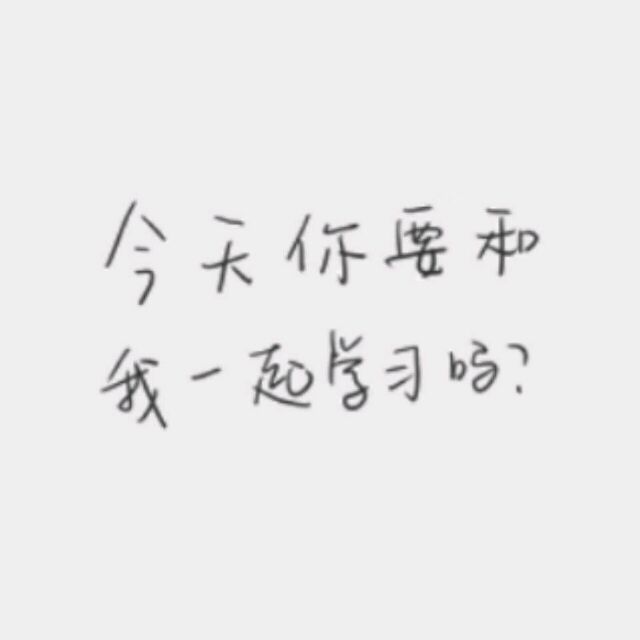 今天你要和
我一起学习吗?